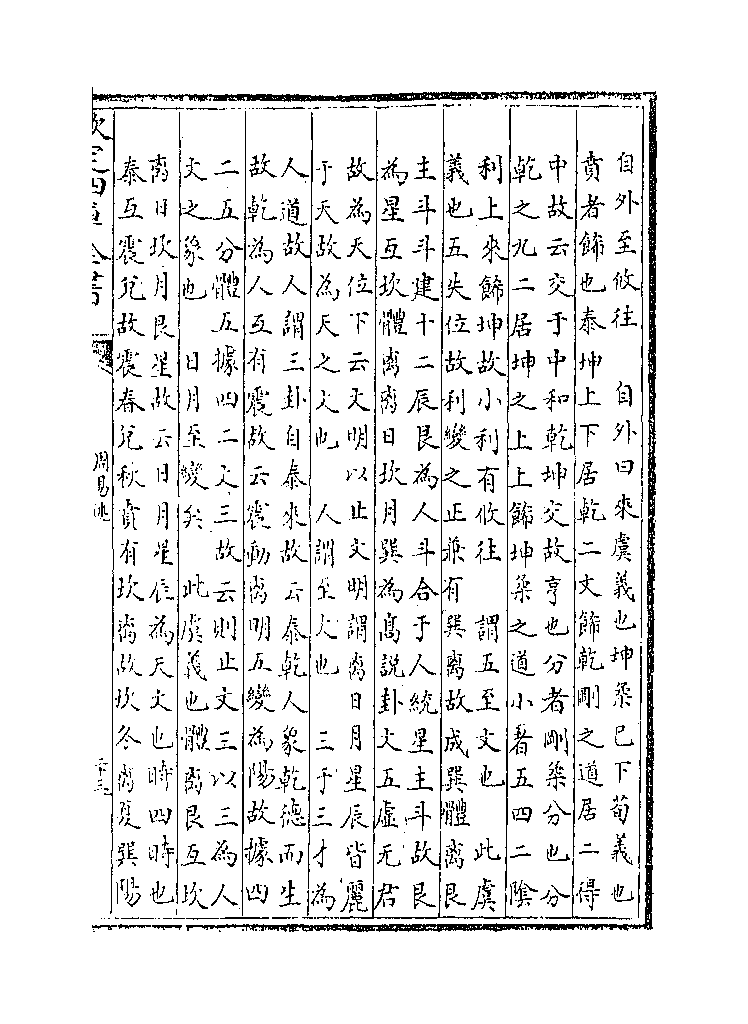 自外至攸往　自外曰來虞義也坤柔已下荀義也
賁者飾也泰坤上下居乾二文飾乾剛之道居二得
中故云交于中和乾坤交故亨也分者剛柔分也分
乾之九二居坤之上上飾坤柔之道小者五四二隂
利上來飾坤故小利有攸往　謂五至文也　此虞
義也五失位故利變之正兼有巽離故成巽體離艮
主斗斗建十二辰艮為人斗合于人統星主斗故艮
為星互坎體離離日坎月巽為髙說卦文五虛无君
故為天位下云文明以止文明謂離日月星辰皆麗
于天故為天之文也　人謂至人也　三于三才為
人道故人謂三卦自泰來故云泰乾人象乾德而生
故乾為人互有震故云震動離明五變為陽故據四
二五分體五據四二文三故云則止文三以三為人
文之象也　日月至變矣　此虞義也體離艮互坎
離日坎月艮星故云日月星辰為天文也時四時也
泰互震兌故震春兌秋賁有坎離故坎冬離夏巽陽
欽定四庫全書
周易述